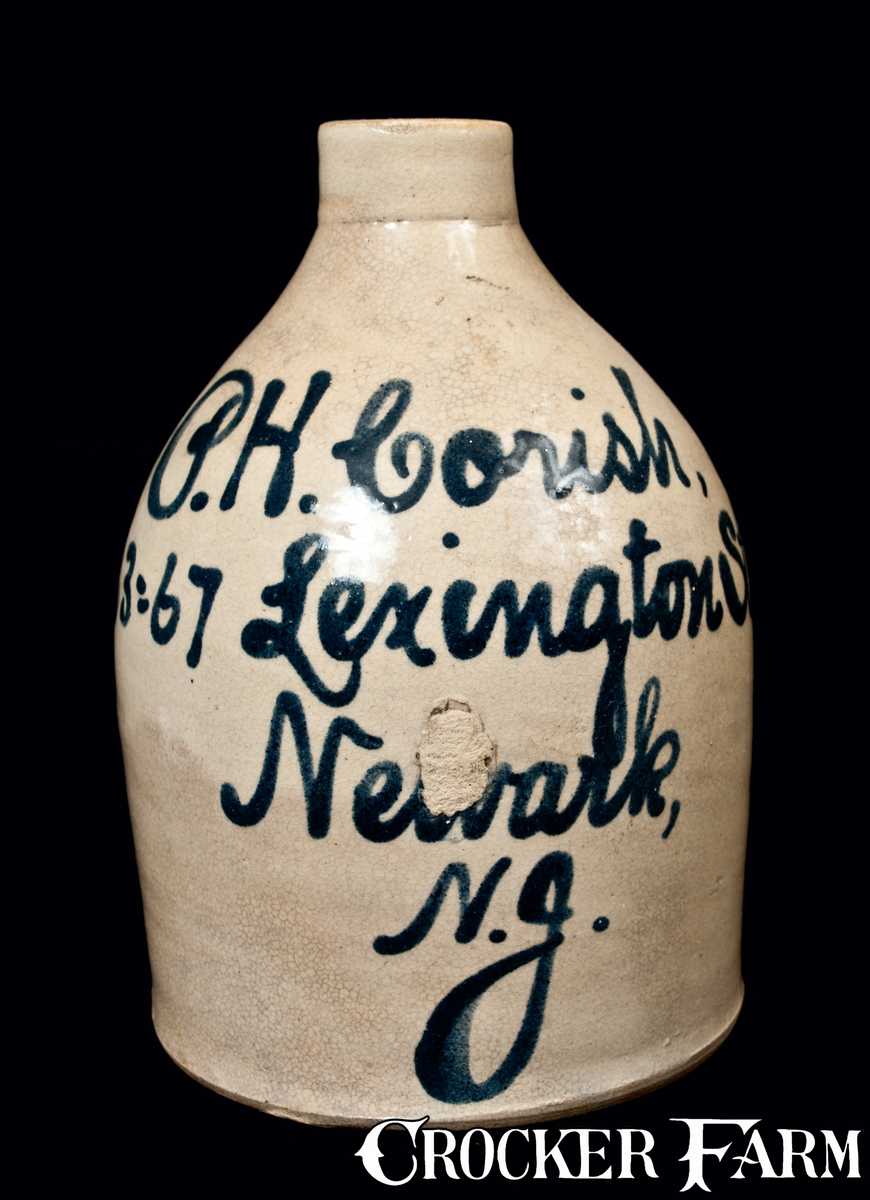 P.H. Corish,
3=67 Lexington S
Newark,
N.J.
CROCKER FARM